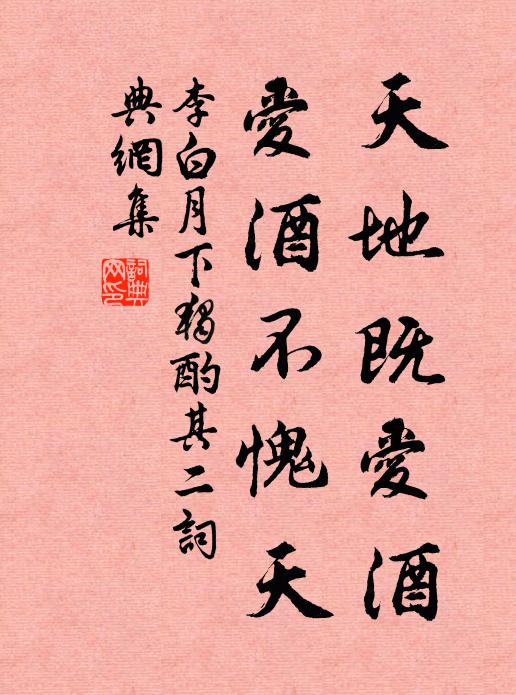 天地既愛酒
愛酒不愧天
李白月下獨酌其二詞
典網集
詞典
网印